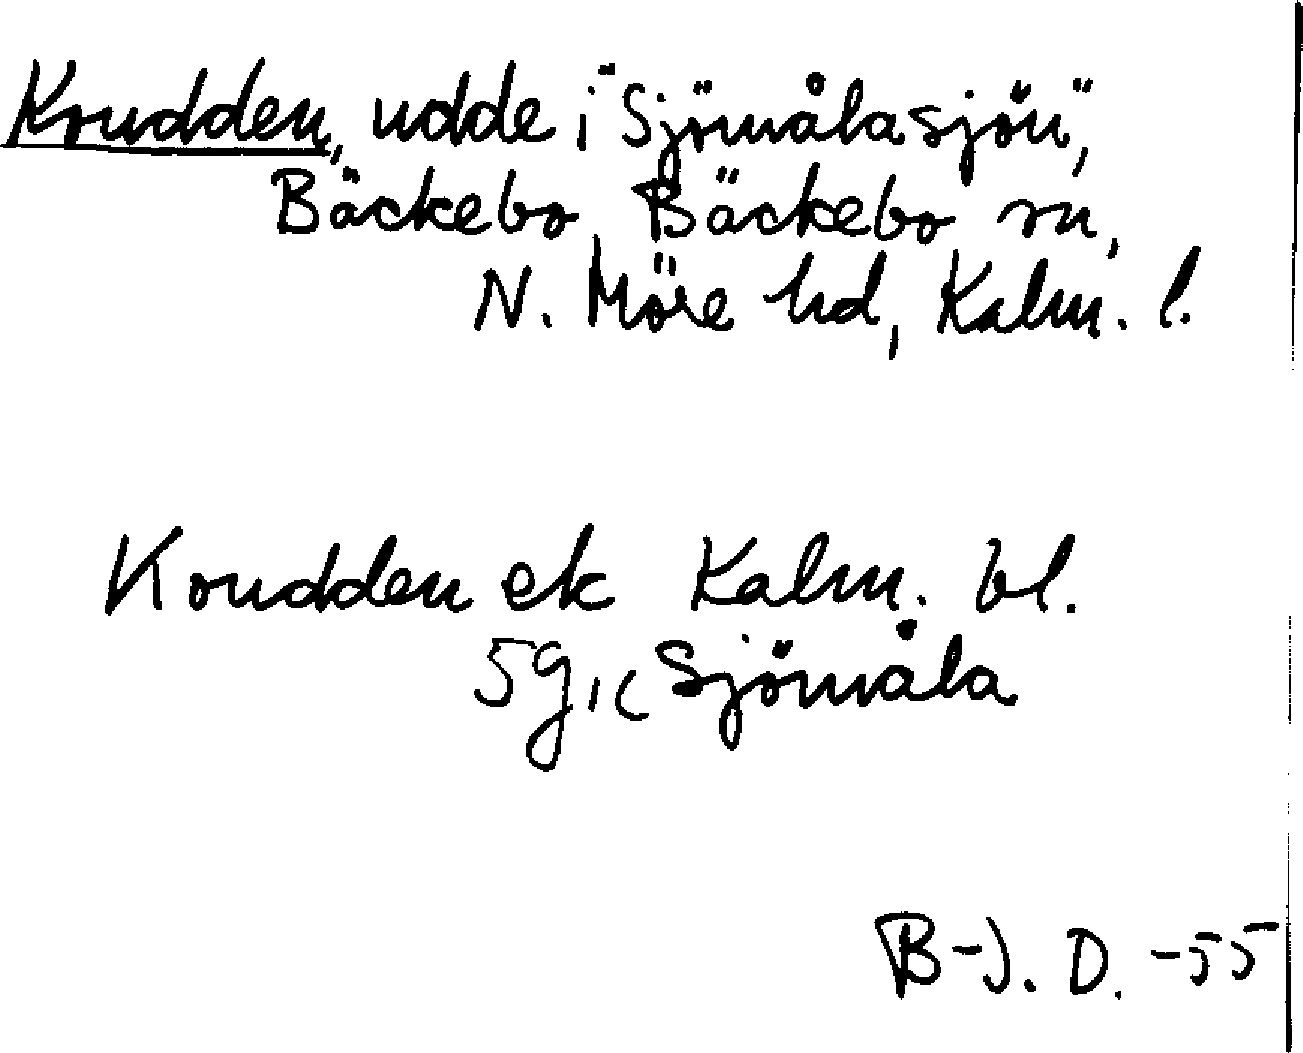 Koudden, udde i "Sjömålasjön",
Bäckebo, Bäckebo sn,
N. Möre hd, Kalm. l.
Koudden ek Kalm. bl.
5g, c Sjömåla
B-J. D. -55